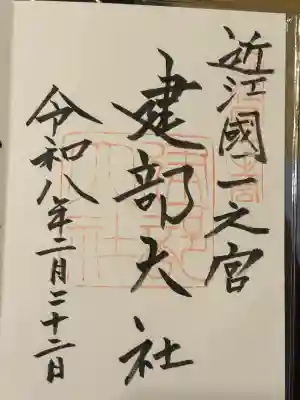 近江國一之宮
建部大社
令和八年二月二十二日